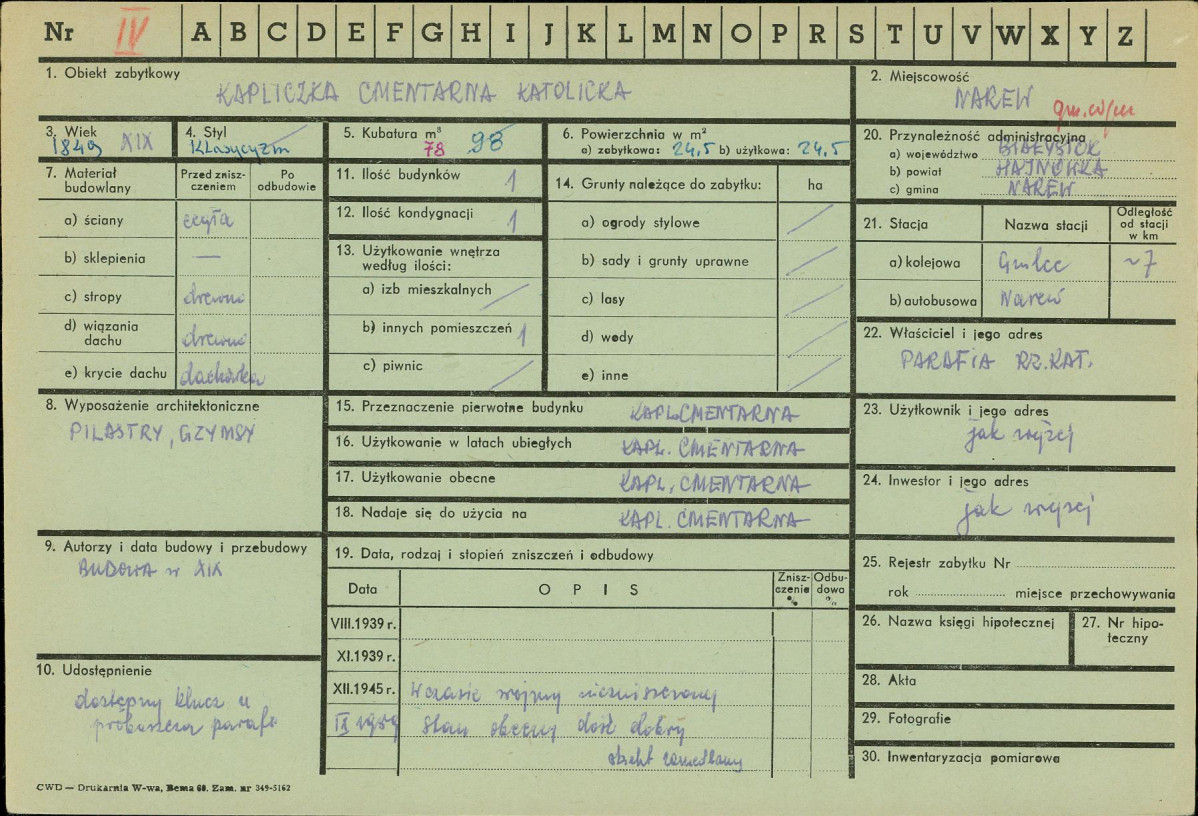 Nr IV A B C D E F G H I J K L M N O P R S T U V W X Y Z
1. Obiekt zabytkowy
KAPLICZKA CMENTARNA KATOLICKA
2. Miejscowość
NAREW
3. Wiek
1849 XIX
4. Styl
Klasycyzm
5. Kubatura m³
78 98
6. Powierzchnia w m²
a) zabytkowa: 24,5 b) użytkowa: 24,5
20. Przynależność administracyjna
a) województwo BIAŁYSTOK
b) powiat HAJNÓWKA
c) gmina NAREW
7. Materiał budowlany
Przed zniszczeniem
Po odbudowie
a) ściany cegła
b) sklepienia —
c) stropy drewno
d) wiązania dachu drewno
e) krycie dachu dachówka
11. Ilość budynków 1
12. Ilość kondygnacji 1
13. Użytkowanie wnętrza według ilości:
a) izb mieszkalnych
b) innych pomieszczeń 1
c) piwnic
14. Grunty należące do zabytku: ha
a) ogrody stylowe
b) sady i grunty uprawne
c) lasy
d) wody
e) inne
21. Stacja
Nazwa stacji
Odległość od stacji w km
a) kolejowa ~7
b) autobusowa Narew
22. Właściciel i jego adres
PARAFIA RZ.KAT.
8. Wyposażenie architektoniczne
PILASTRY, GZYMSY
15. Przeznaczenie pierwotne budynku KAPL.CMENTARNA
16. Użytkowanie w latach ubiegłych KAPL. CMENTARNA
17. Użytkowanie obecne KAPL. CMENTARNA
18. Nadaje się do użycia na KAPL. CMENTARNA
23. Użytkownik i jego adres
jak wyżej
24. Inwestor i jego adres
jak wyżej
9. Autorzy i data budowy i przebudowy
BUDOWA w XIX
10. Udostępnienie
dostępny klucz u
proboszcza parafi
19. Data, rodzaj i stopień zniszczeń i odbudowy
Data O P I S Zniszczenie % Odbudowa %
VIII.1939 r.
XI.1939 r.
XII.1945 r. W czasie wojny niezniszczony
IX 1959 Stan obecny dość dobry
obiekt zaniedbany
25. Rejestr zabytku Nr
rok miejsce przechowywania
26. Nazwa księgi hipotecznej
27. Nr hipoteczny
28. Akta
29. Fotografie
30. Inwentaryzacja pomiarowa
CWD — Drukarnia W-wa, Bema 60. Zam. nr 349-5162